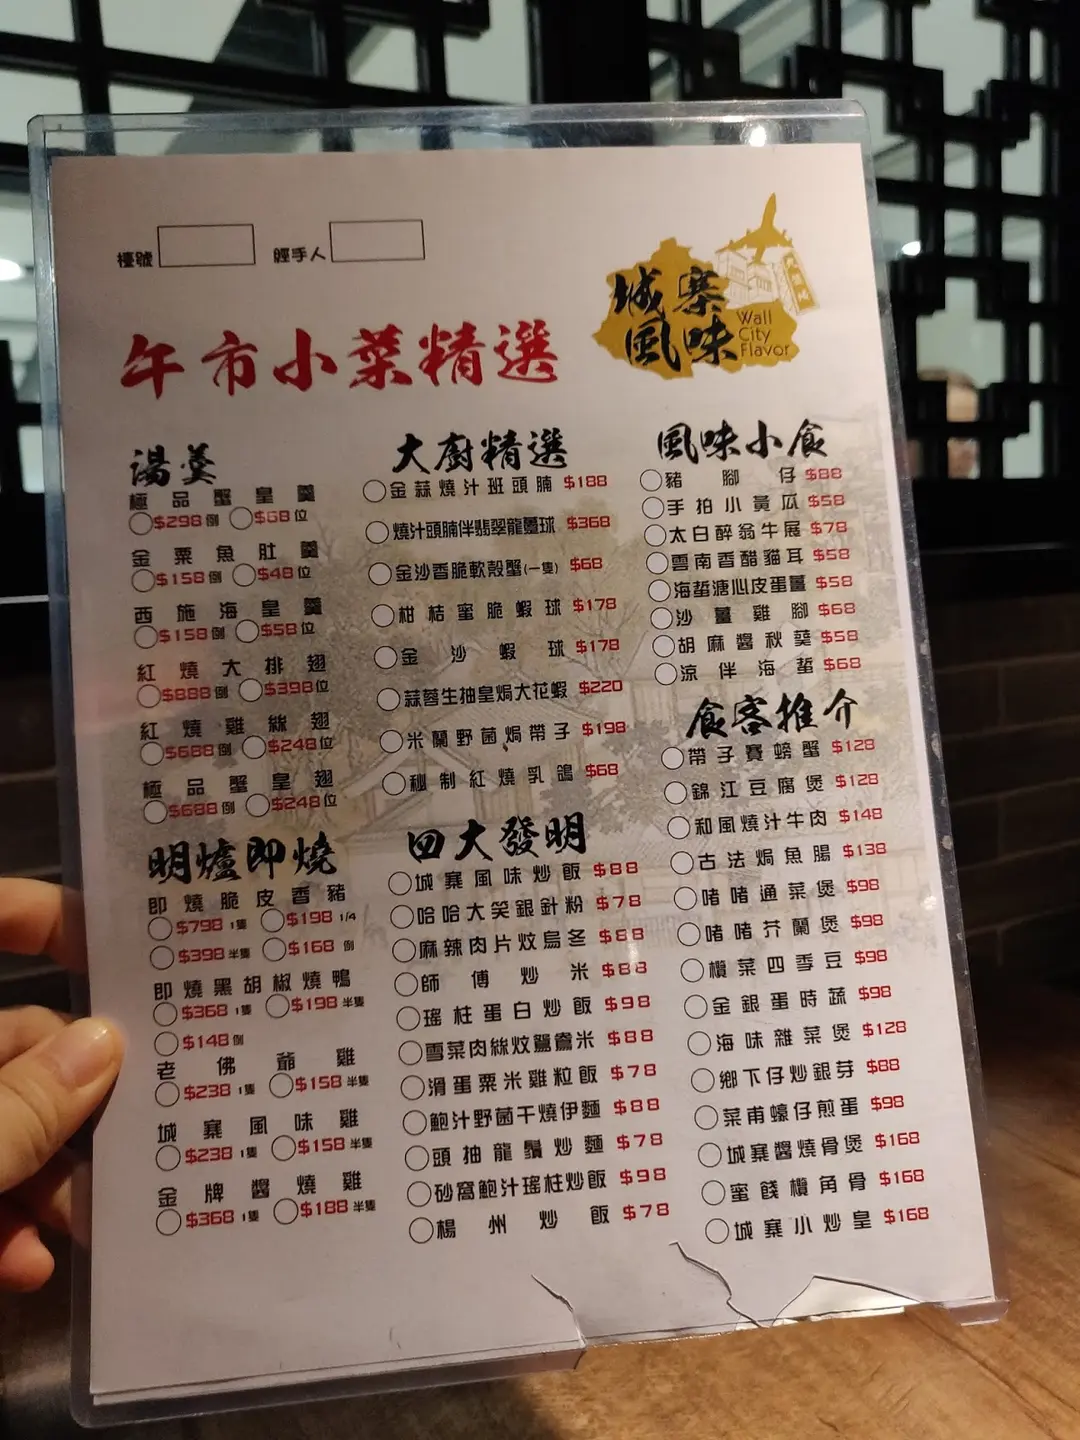 檯號
經手人
城寨風味
Wall
City
Flavor
午市小菜精選
湯羹
極品蟹皇羹
$298例 $68位
金粟魚肚羹
$158例 $48位
西施海皇羹
$158例 $58位
紅燒大排翅
$888例 $398位
紅燒雞絲翅
$688例 $248位
極品蟹皇翅
$688例 $248位
明爐即燒
即燒脆皮香豬
$798 1隻 $198 1/4
$398半隻 $168例
即燒黑胡椒燒鴨
$368 1隻 $198半隻
$148例
老佛爺雞
$238 1隻 $158半隻
城寨風味雞
$238 1隻 $158半隻
金牌醬燒雞
$368 1隻 $188半隻
大廚精選
金蒜燒汁班頭腩 $188
燒汁頭腩伴翡翠龍躉球 $368
金沙香脆軟殼蟹(一隻) $68
柑桔蜜脆蝦球 $178
金沙蝦球 $178
蒜蓉生抽皇焗大花蝦 $220
米蘭野菌焗帶子 $198
秘制紅燒乳鴿 $68
四大發明
城寨風味炒飯 $88
哈哈大笑銀針粉 $78
麻辣肉片炆烏冬 $88
師傅炒米 $88
瑤柱蛋白炒飯 $98
雪菜肉絲炆鴛鴦米 $88
滑蛋粟米雞粒飯 $78
鮑汁野菌干燒伊麵 $88
頭抽龍鬚炒麵 $78
砂窩鮑汁瑤柱炒飯 $98
楊州炒飯 $78
風味小食
豬腳仔 $88
手拍小黃瓜 $58
太白醉翁牛展 $78
雲南香醋貓耳 $58
海蜇溏心皮蛋薑 $58
沙薑雞腳 $68
胡麻醬秋葵 $58
涼伴海蜇 $68
食客推介
帶子賽螃蟹 $128
錦江豆腐煲 $128
和風燒汁牛肉 $148
古法焗魚腸 $138
啫啫通菜煲 $98
啫啫芥蘭煲 $98
欖菜四季豆 $98
金銀蛋時蔬 $98
海味雜菜煲 $128
鄉下仔炒銀芽 $88
菜甫蠔仔煎蛋 $98
城寨醬燒骨煲 $168
蜜餞欖角骨 $168
城寨小炒皇 $168